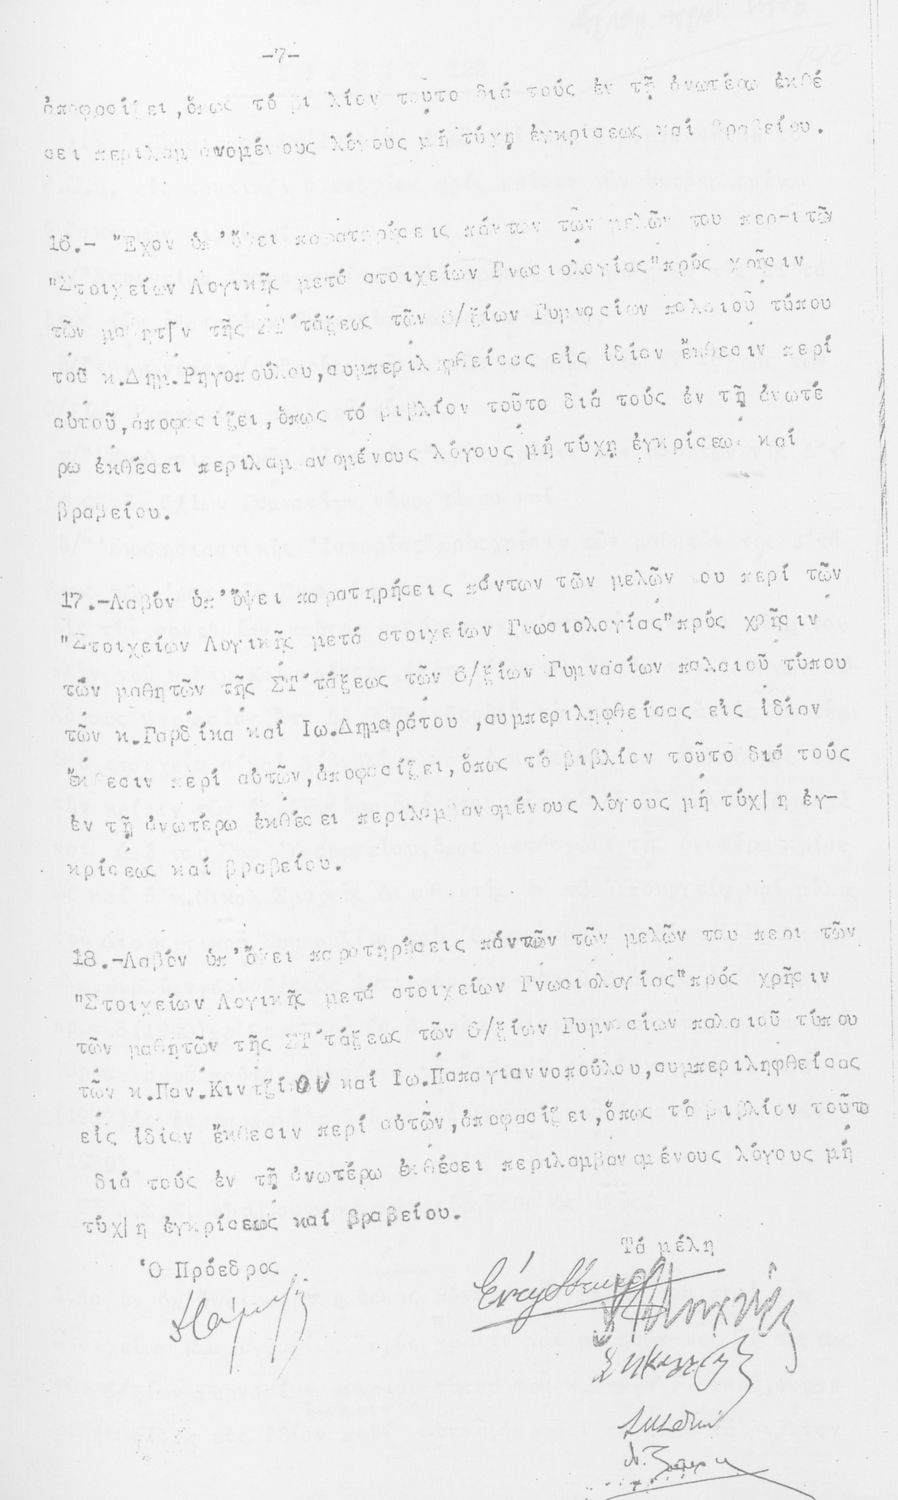 -7-
ἀποφασίζει,ὅπως τό βι λίον τοῦτο διά τούς ἐν τῇ ἀνωτέρω ἐκθέ
σει περιλαμ ανομένους λόγους μή τύχῃ ἐγκρίσεως καί βραβείου.
16.- Ἔχον ὑπ'ὄψει παρατηρήσεις πάντων τῶν μελῶν του περ-ι τῶν
"Στοιχείων Λογικῆς μετά στοιχείων Γνωσιολογίας"πρός χρῆσιν
τῶν μαθητῶν τῆς ΣΤ΄τάξεως τῶν 6/ξίων Γυμνασίων παλαιοῦ τύπου
τοῦ κ.Δημ.Ρηγοπούλου,συμπεριληφθείσας εἰς ἰδίαν ἔκθεσιν περί
αὐτοῦ,ἀποφασίζει,ὅπως τό βιβλίον τοῦτο διά τούς ἐν τῇ ἀνωτέ
ρω ἐκθέσει περιλαμ ανομένους λόγους μή τύχῃ ἐγκρίσεως καί
βραβείου.
17.-Λαβόν ὑπ'ὄψει παρατηρήσεις πάντων τῶν μελῶν του περί τῶν
"Στοιχείων Λογικῆς μετά στοιχείων Γνωσιολογίας"πρός χρῆσιν
τῶν μαθητῶν τῆς ΣΤ΄τάξεως τῶν 6/ξίων Γυμνασίων παλαιοῦ τύπου
τῶν κ.Γαρδίκα καί Ιω.Δημαράτου ,συμπεριληφθείσας εἰς ἰδίαν
ἔκθεσιν περί αὐτῶν,ἀποφασίζει,ὅπως τό βιβλίον τοῦτο διά τούς
ἐν τῇ ἀνωτέρω ἐκθέσει περιλαμβανομένους λόγους μή τύχ|η ἐγ-
κρίσεως καί βραβείου.
18.-Λαβόν ὑπ'ὄψει παρατηρήσεις πάντων τῶν μελῶν του περι τῶν
"Στοιχείων Λογικῆς μετά στοιχείων Γνωσιολογίας"πρός χρῆσιν
τῶν μαθητῶν τῆς ΣΤ΄τάξεως τῶν 6/ξίων Γυμνασίων παλαιοῦ τύπου
τῶν κ.Παν.Κιντζίου καί Ιω.Παπαγιαννοπούλου,συμπεριληφθείσας
εἰς ἰδίαν ἔκθεσιν περί αὐτῶν,ἀποφασίζει,ὅπως τό βιβλίον τοῦτο
διά τούς ἐν τῇ ἀνωτέρω ἐκθέσει περιλαμβανομένους λόγους μή
τύχ|η ἐγκρίσεως καί βραβείου.
Τά μέλη
Ὁ Πρόεδρος